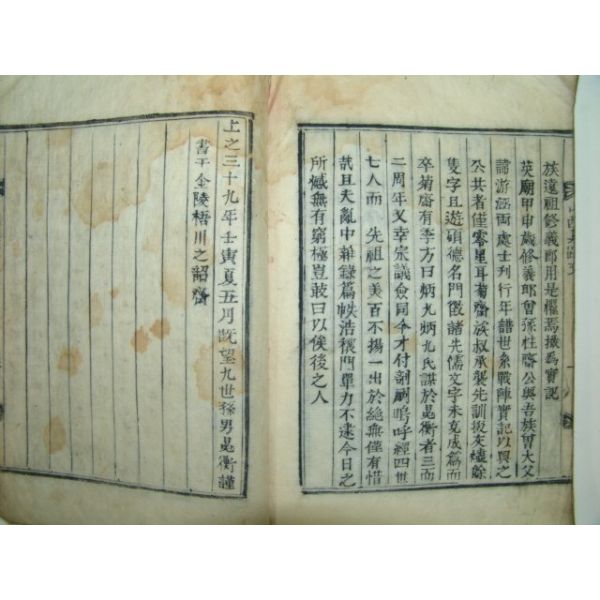 族遠祖修義郎用是懼焉摭爲實記
英廟甲申歲修義郎曾孫性齋公與吾族曾大父
諱游涵兩處士刊行年譜世系戰陣實記以與之
公共者僅零星耳菊齋族叔承襲先訓拔灰燼餘
隻字且遊碩德名門徵諸先儒文字未克成篇而
卒菊齋有季方曰炳九炳九氏謀於昺衡者三而
二周年又幸宗議僉同今才付剞劂嗚呼經四世
七人而 先祖之美百不揚一出於絶無僅有惜
哉且夫亂中雜錄篇帙浩穰門單力不逮今日之
所憾無有窮極豈敢曰以俟後之人
上之三十九年壬寅夏五月旣望九世孫男昺衡謹
書于金陵梧川之韶齋